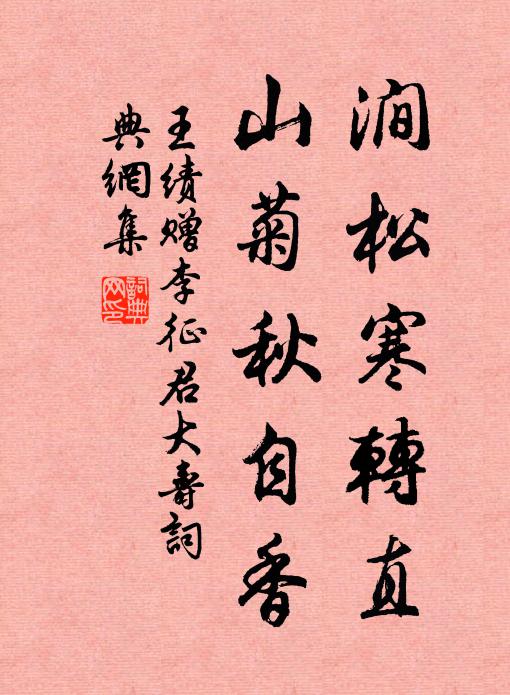 澗松寒轉直
山菊秋自香
王绩赠李征君大壽詞
典網集
詞典网印